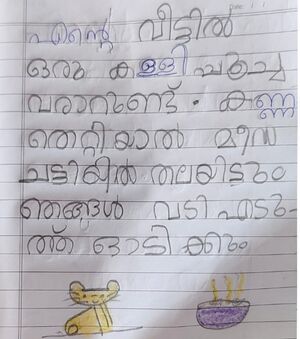 എന്റെ വീട്ടിൽ
ഒരു കള്ളി പൂച്ച
വരാറുണ്ട്. കണ്ണ
തെറ്റിയാൽ മീൻ
ചട്ടിയിൽ തലയിടും
ഞങ്ങൾ വടി എടു-
ത്ത് ഓടിക്കും